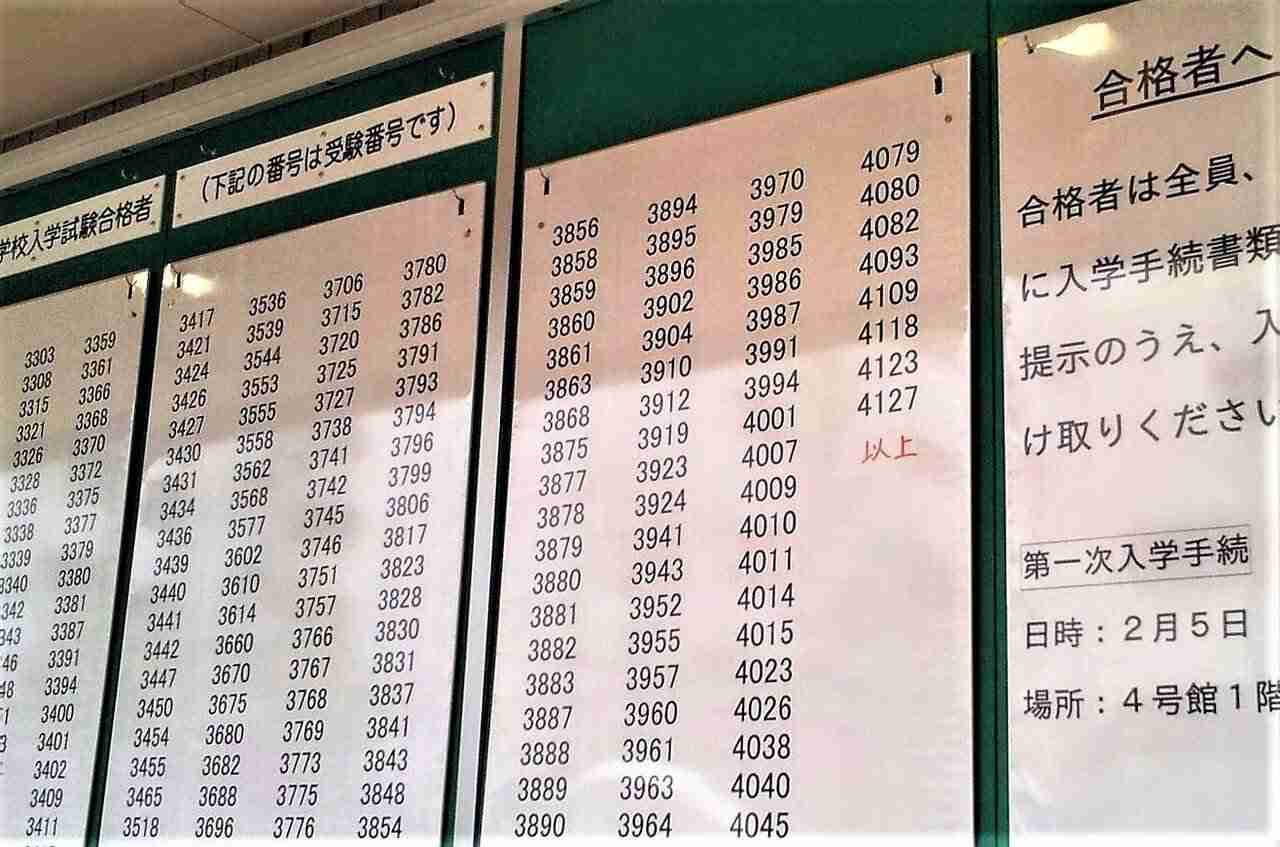 学校入学試験合格者
(下記の番号は受験番号です)
3303
3308
3315
3321
3326
3328
3336
3338
3339
3340
3359
3361
3366
3368
3370
3372
3375
3377
3379
3380
3381
3387
3391
3394
3400
3401
3402
3409
3411
3417
3421
3424
3426
3427
3430
3431
3434
3436
3439
3440
3441
3442
3447
3450
3454
3455
3465
3518
3536
3539
3544
3553
3555
3558
3562
3568
3577
3602
3610
3614
3660
3670
3675
3680
3682
3688
3696
3706
3715
3720
3725
3727
3738
3741
3742
3745
3746
3751
3757
3766
3767
3768
3769
3773
3775
3776
3780
3782
3786
3791
3793
3794
3796
3799
3806
3817
3823
3828
3830
3831
3837
3841
3843
3848
3854
3856
3858
3859
3860
3861
3863
3868
3875
3877
3878
3879
3880
3881
3882
3883
3887
3888
3889
3890
3894
3895
3896
3902
3904
3910
3912
3919
3923
3924
3941
3943
3952
3955
3957
3960
3961
3963
3964
3970
3979
3985
3986
3987
3991
3994
4001
4007
4009
4010
4011
4014
4015
4023
4026
4038
4040
4045
4079
4080
4082
4093
4109
4118
4123
4127
以上
合格者へ
合格者は全員、
に入学手続書類
提示のうえ、入
け取りください
第一次入学手続
日時：２月５日
場所：４号館１階